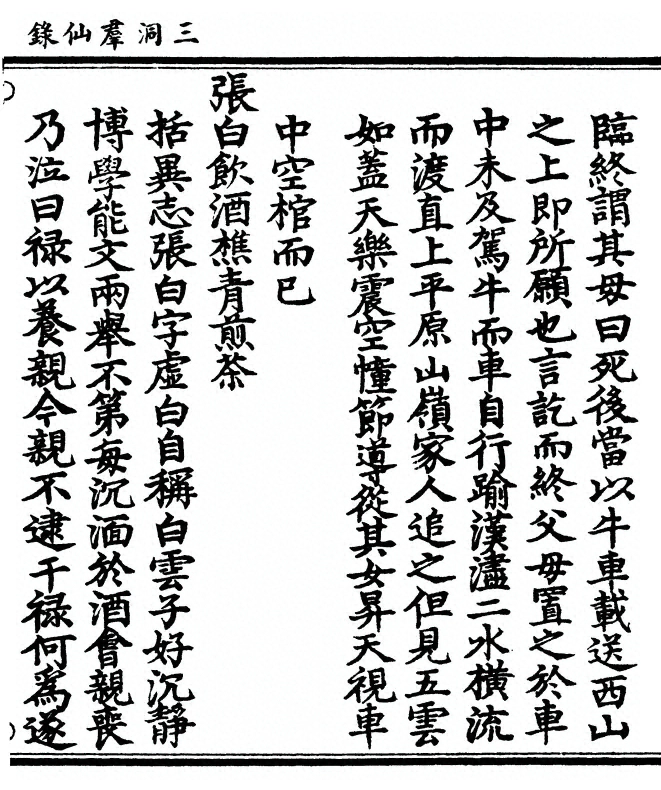 三洞羣仙錄
臨終謂其母曰死後當以牛車載送西山
之上即所願也言訖而終父母置之於車
中未及駕牛而車自行踰漢濜二水橫流
而渡直上平原山嶺家人追之但見五雲
如蓋天樂震空幢節導從其女昇天視車
中空棺而已
張白飲酒樵青煎茶
括異志張白字虛白自稱白雲子好沉靜
博學能文兩舉不第每沉湎於酒會親喪
乃泣曰祿以養親今親不逮干祿何爲遂